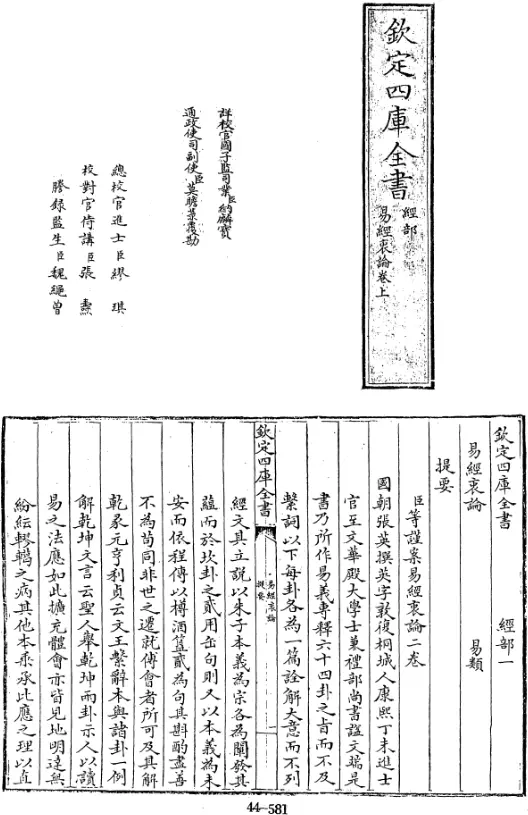 欽定四庫全書
經部
易經衷論卷上
詳校官國子監司業臣納麟寶
通政使司副使臣莫瞻菉覆勘
總校官進士臣繆琪
校對官侍講臣張燾
謄錄監生臣魏繩曾
欽定四庫全書 經部一
易經衷論 易類
提要
臣等謹案易經衷論二卷
國朝張英撰英字敦復桐城人康熙丁未進士
官至文華殿大學士兼禮部尚書諡文端是
書乃所作易義專釋六十四卦之旨而不及
繫詞以下每卦各為一篇詮解大意而不列
欽定四庫全書
易經衷論
提要
經文其立說以朱子本義為宗各為闡發其
蘊而於坎卦之貳用缶句則又以本義為未
安而依程傳以樽酒簋貳為句其斟酌盡善
不為苟同非世之遷就傅會者所可及其解
乾彖元亨利貞云文王繫辭本與諸卦一例
解乾坤文言云聖人舉乾坤兩卦示人以讀
易之法應如此擴充體會亦皆見地明達無
紛紜轇轕之病其他本乘承比應之理以直
44-581